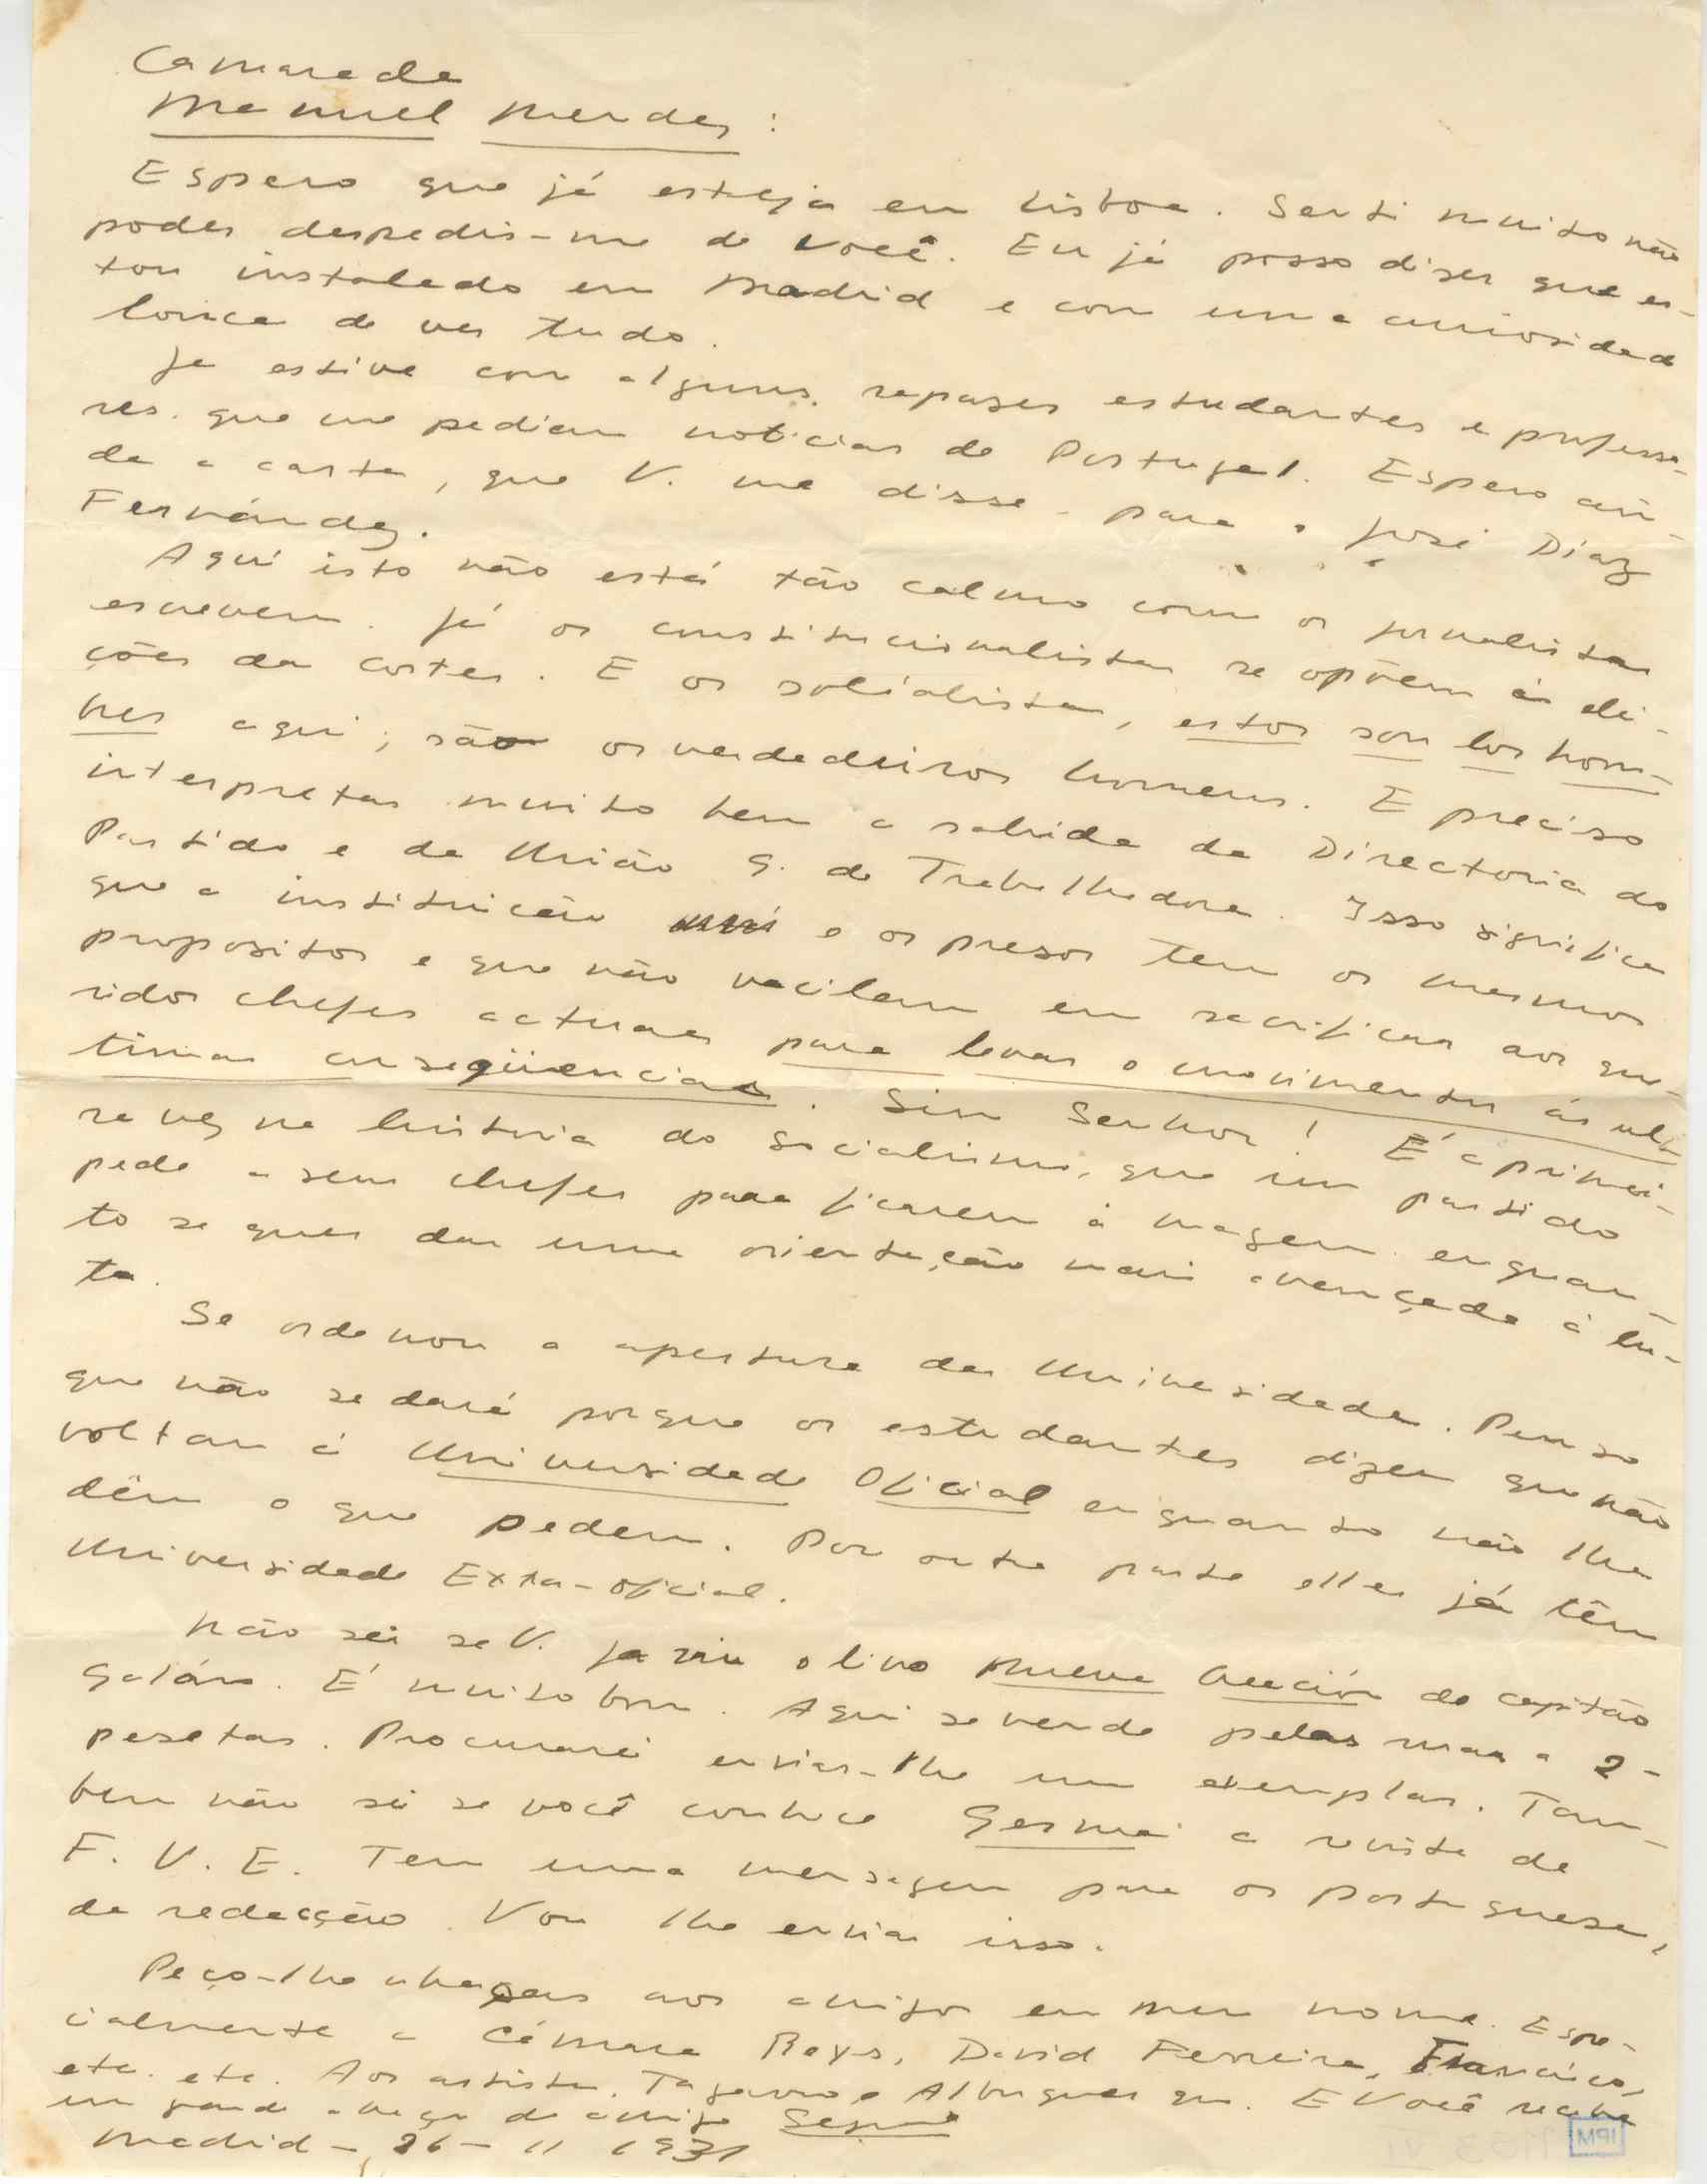 Camarada
Manuel Mendes:
Espero que já esteja em Lisboa. Senti muito não
poder despedir-me de você. Eu já posso dizer que es-
tou instalado em Madrid e com uma curiosidade
louca de ver tudo.
Já estive com alguns rapazes estudantes e professo-
res que me pediam noticias de Portugal. Espero ain-
da a carta, que V. me disse para o José Díaz
Fernández.
Aqui isto não está tão calmo como os jornalistas
escrevem. Já os constitucionalistas se opõem ás elei-
ções da Cortes. E os socialistas, estos son los hom-
bres aqui; são os verdadeiros homens. E preciso
interpretar muito bem a sahida da Directoria do
Partido e da União G. de Trabalhadores. Isso significa
que a instituição e os presos tem os mesmos
propositos e que não vacilam em sacrificar aos que-
ridos chefes actuaes para levar o movimento ás ulti-
timas conseqüencias. Sim Senhor! É a primei-
ra vez na historia do socialismo, que um partido
pede a seus chefes para ficarem á magem enquan-
to se quer dar uma orientação mais avançada á lu-
ta.
Se ordenou a apertura das Universidades. Penso
que não se dará porque os estudantes dizem que não
voltam á Universidade Oficial enquanto não lhe
dêm o que pedem. Por outra parte elles já têm
Universidade Extra-oficial.
Não sei se V. ja viu o livro Nueva Creación do capitão
Galán. É muito bom. Aqui se vende pelas ruas a 2-
pesetas. Procurarei enviar-lhe um exemplar. Tam-
bem não sei se você conhece Germa a revista da
F. U. E. Tem uma mensagem para os portugueses,
da redacção. Vou lhe enviar isso.
Peço-lhe abraçar aos amigos em meu nome. Espe-
cialmente a Cámara Reys, David Ferreira, Francisco,
etc. etc. Aos artistas Tagarro e Albuquerque. E Você receba
um grande abraço do amigo
Madrid - 26 - 11 1931
IPM